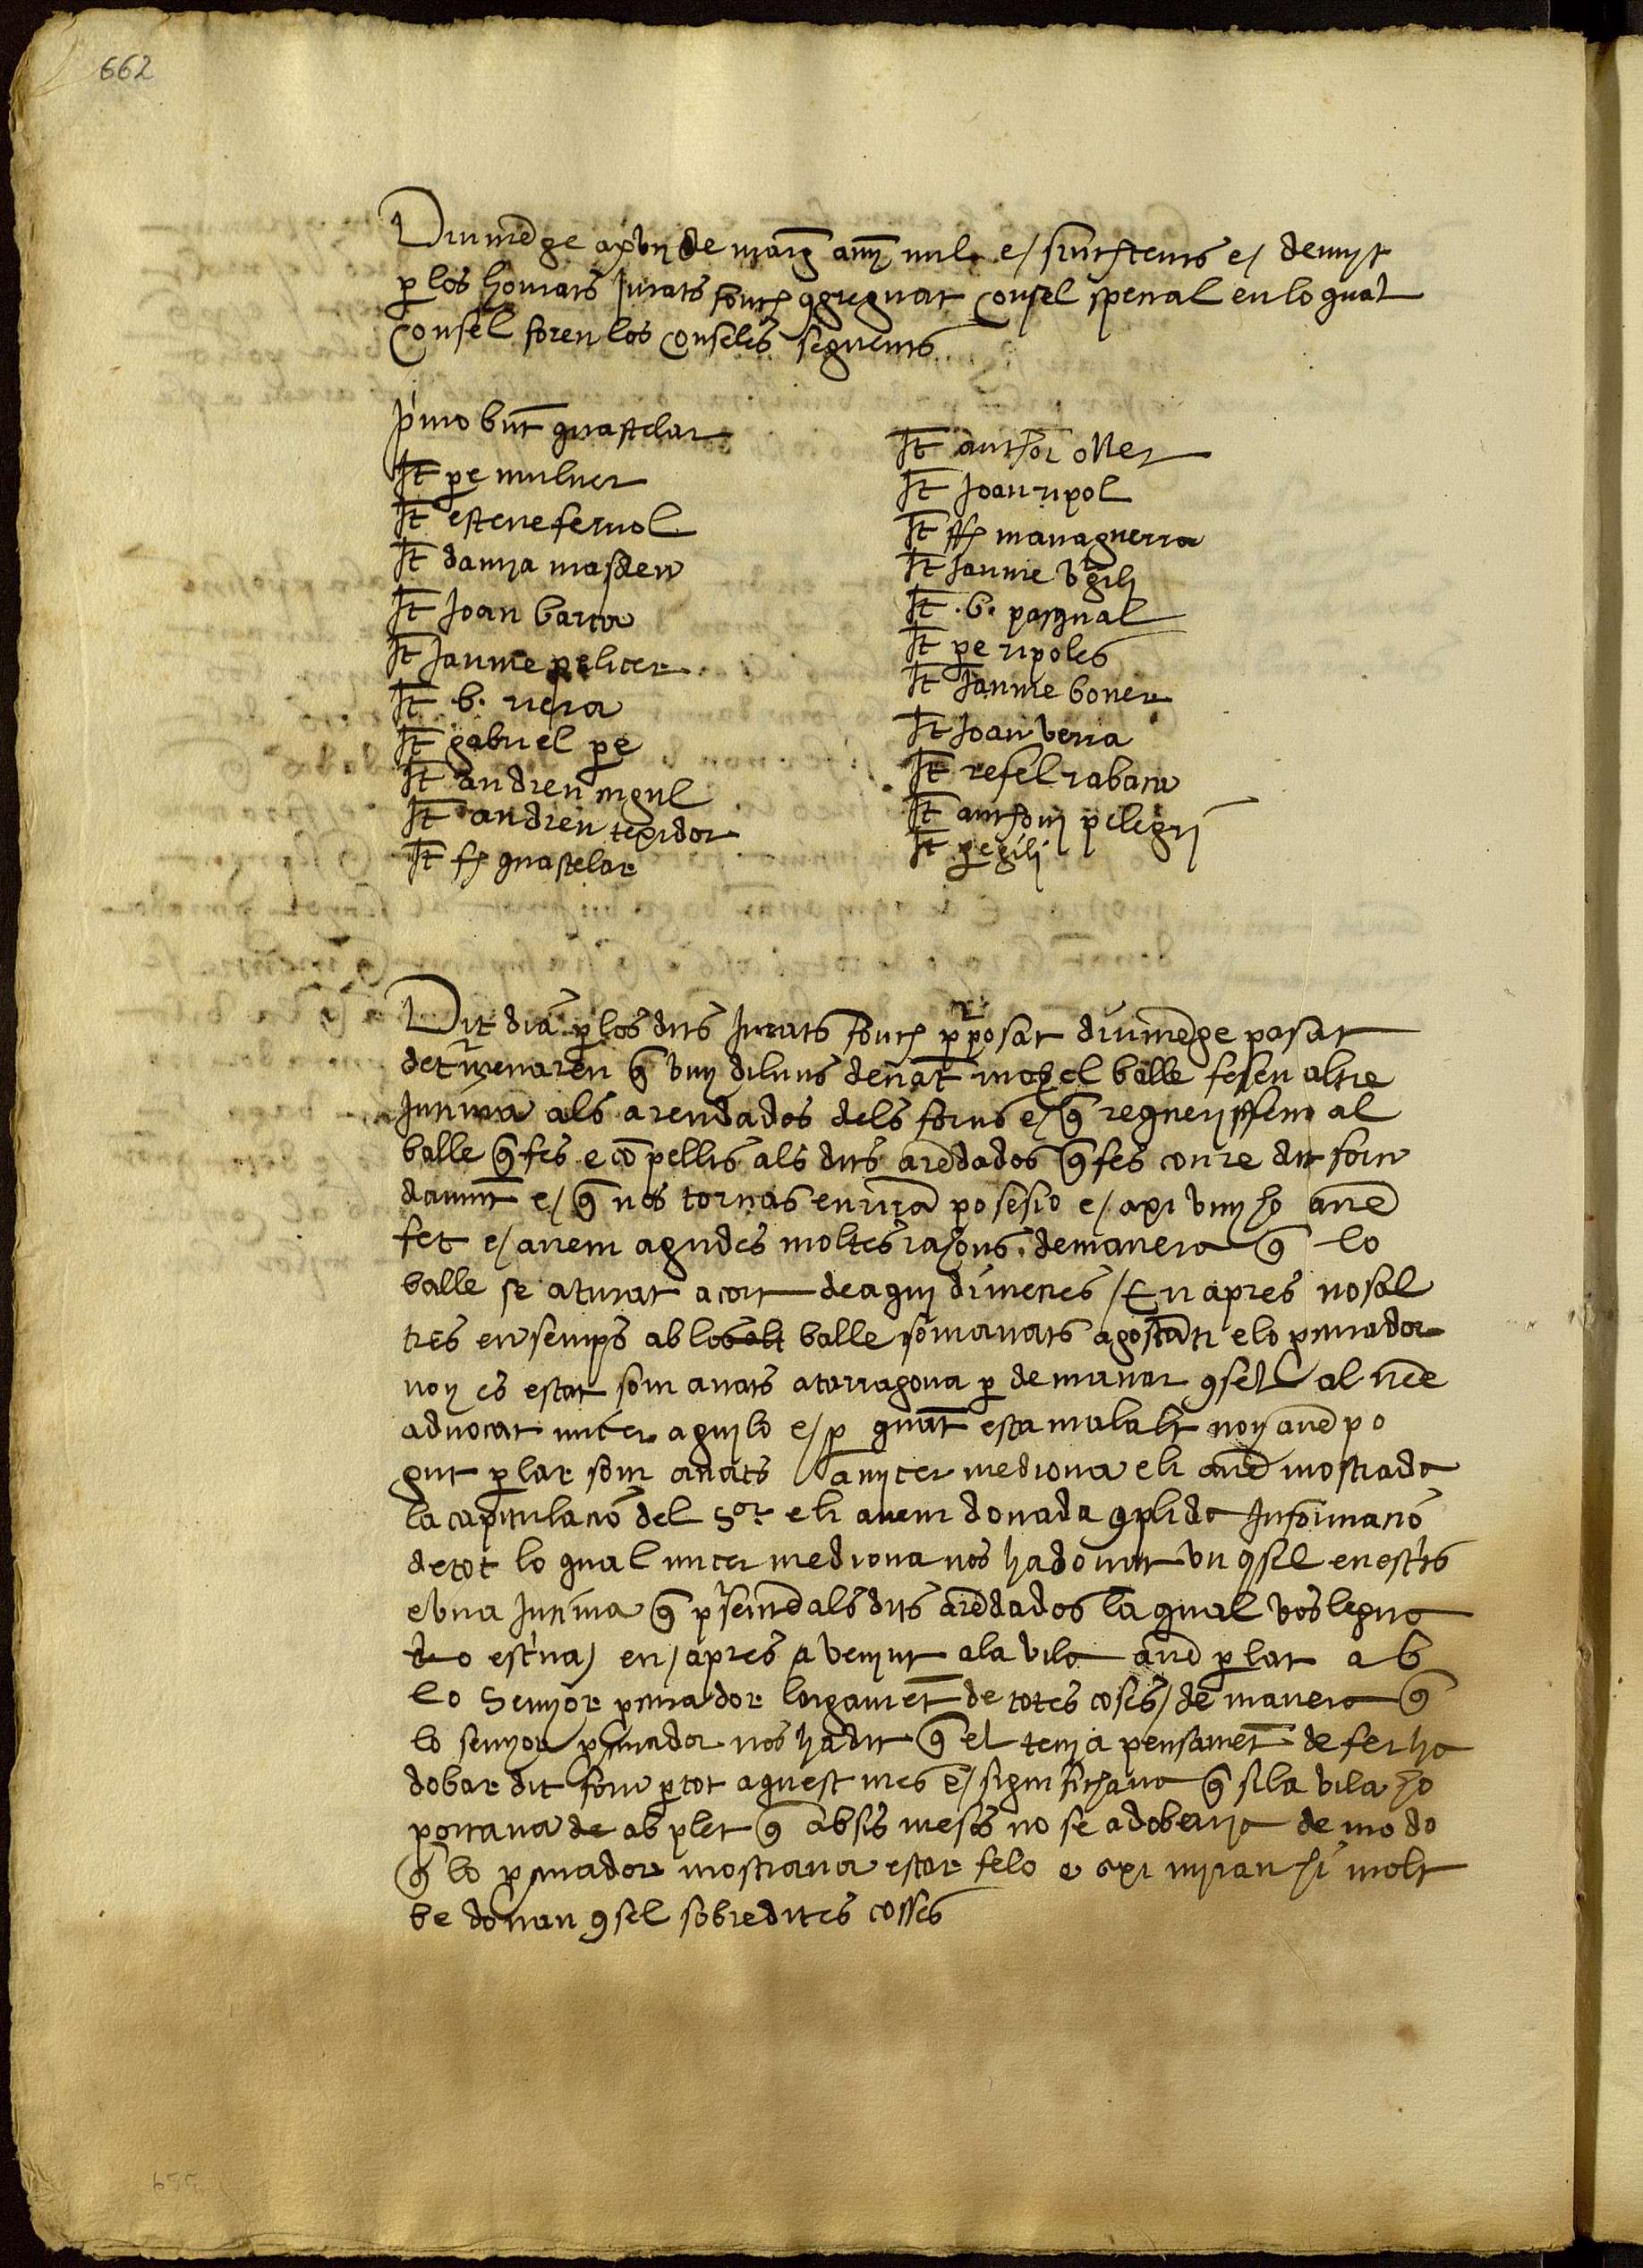 662
Diumēge a xvij de març any mil e sinchsents e demyt
p los honrats Jurats fonch ꝯgreguat Consel spetial en lo qual
Consel foren los Conseles seguents
pͥmo bnt guastelar
It pe muluer
It esteve feruol
It damja masdeu
It Joan barta
It Jaume peliter
It b. riera
It gabriel pe
It andreu mgul
It andreu texidor
It ff guastelar
It anthoi oller
It Joan ripol
It ff managuerra
It Jaume vgilj
It .b. pasqual
It pe ripoles
It Jaume boner
It Joan veria
It refel rabaca
It anthonj pelegrj
It pe gilj
Dit dia p los dits Jurats fonch pposat diumēge pasat
detmenaren q̄ vuy diluns denāt mosel balle fesen altre
Intima als arendados dels forns e q̄ requerissem al
balle q̄ fes e cōpellis als dits arēdados q̄ fes coure dit forn
damūt e q̄ nos tornas en nrā posesio e axi vuy ho avē
fet e avem agudes moltes rahons. de manera q̄ lo
balle se aturat acort de aquj dimecres / En apres nosal
tres ensemps ab los alt balle som anats a gostātj e lo pcurador
noy es estat som anats a tarragona p demanar ꝯsell al nrē
advocat micer aguilo e p quāt esta malalt noy avē po
gut parlar som anats a mycer mediona e li avē mostrada
la capitulacio del sor e li avem donada ꝯplida Informacio
de tot lo qual micer mediona nos ha donat vn ꝯsel en escrits
e vna Intima q̄ psentē als dits arēdados la qual vos legna
do escriua) en apres a venjut a la vila avē parlat ab
lo Senyor pcurador largamēt de totes coses / de manera q̄
lo senyor pcurador nos ha dit q̄ el tenja pensamēt de fer ha
dobar dit forn p tot aquest mes e significhaua q̄ si la vila ho
portaua de ab plet q̄ ab sis mesos no se adobarja de modo
q̄ lo pcurador mostraua estar felo e axi miran hi molt
be donan ꝯsel sobre dites cosses
655